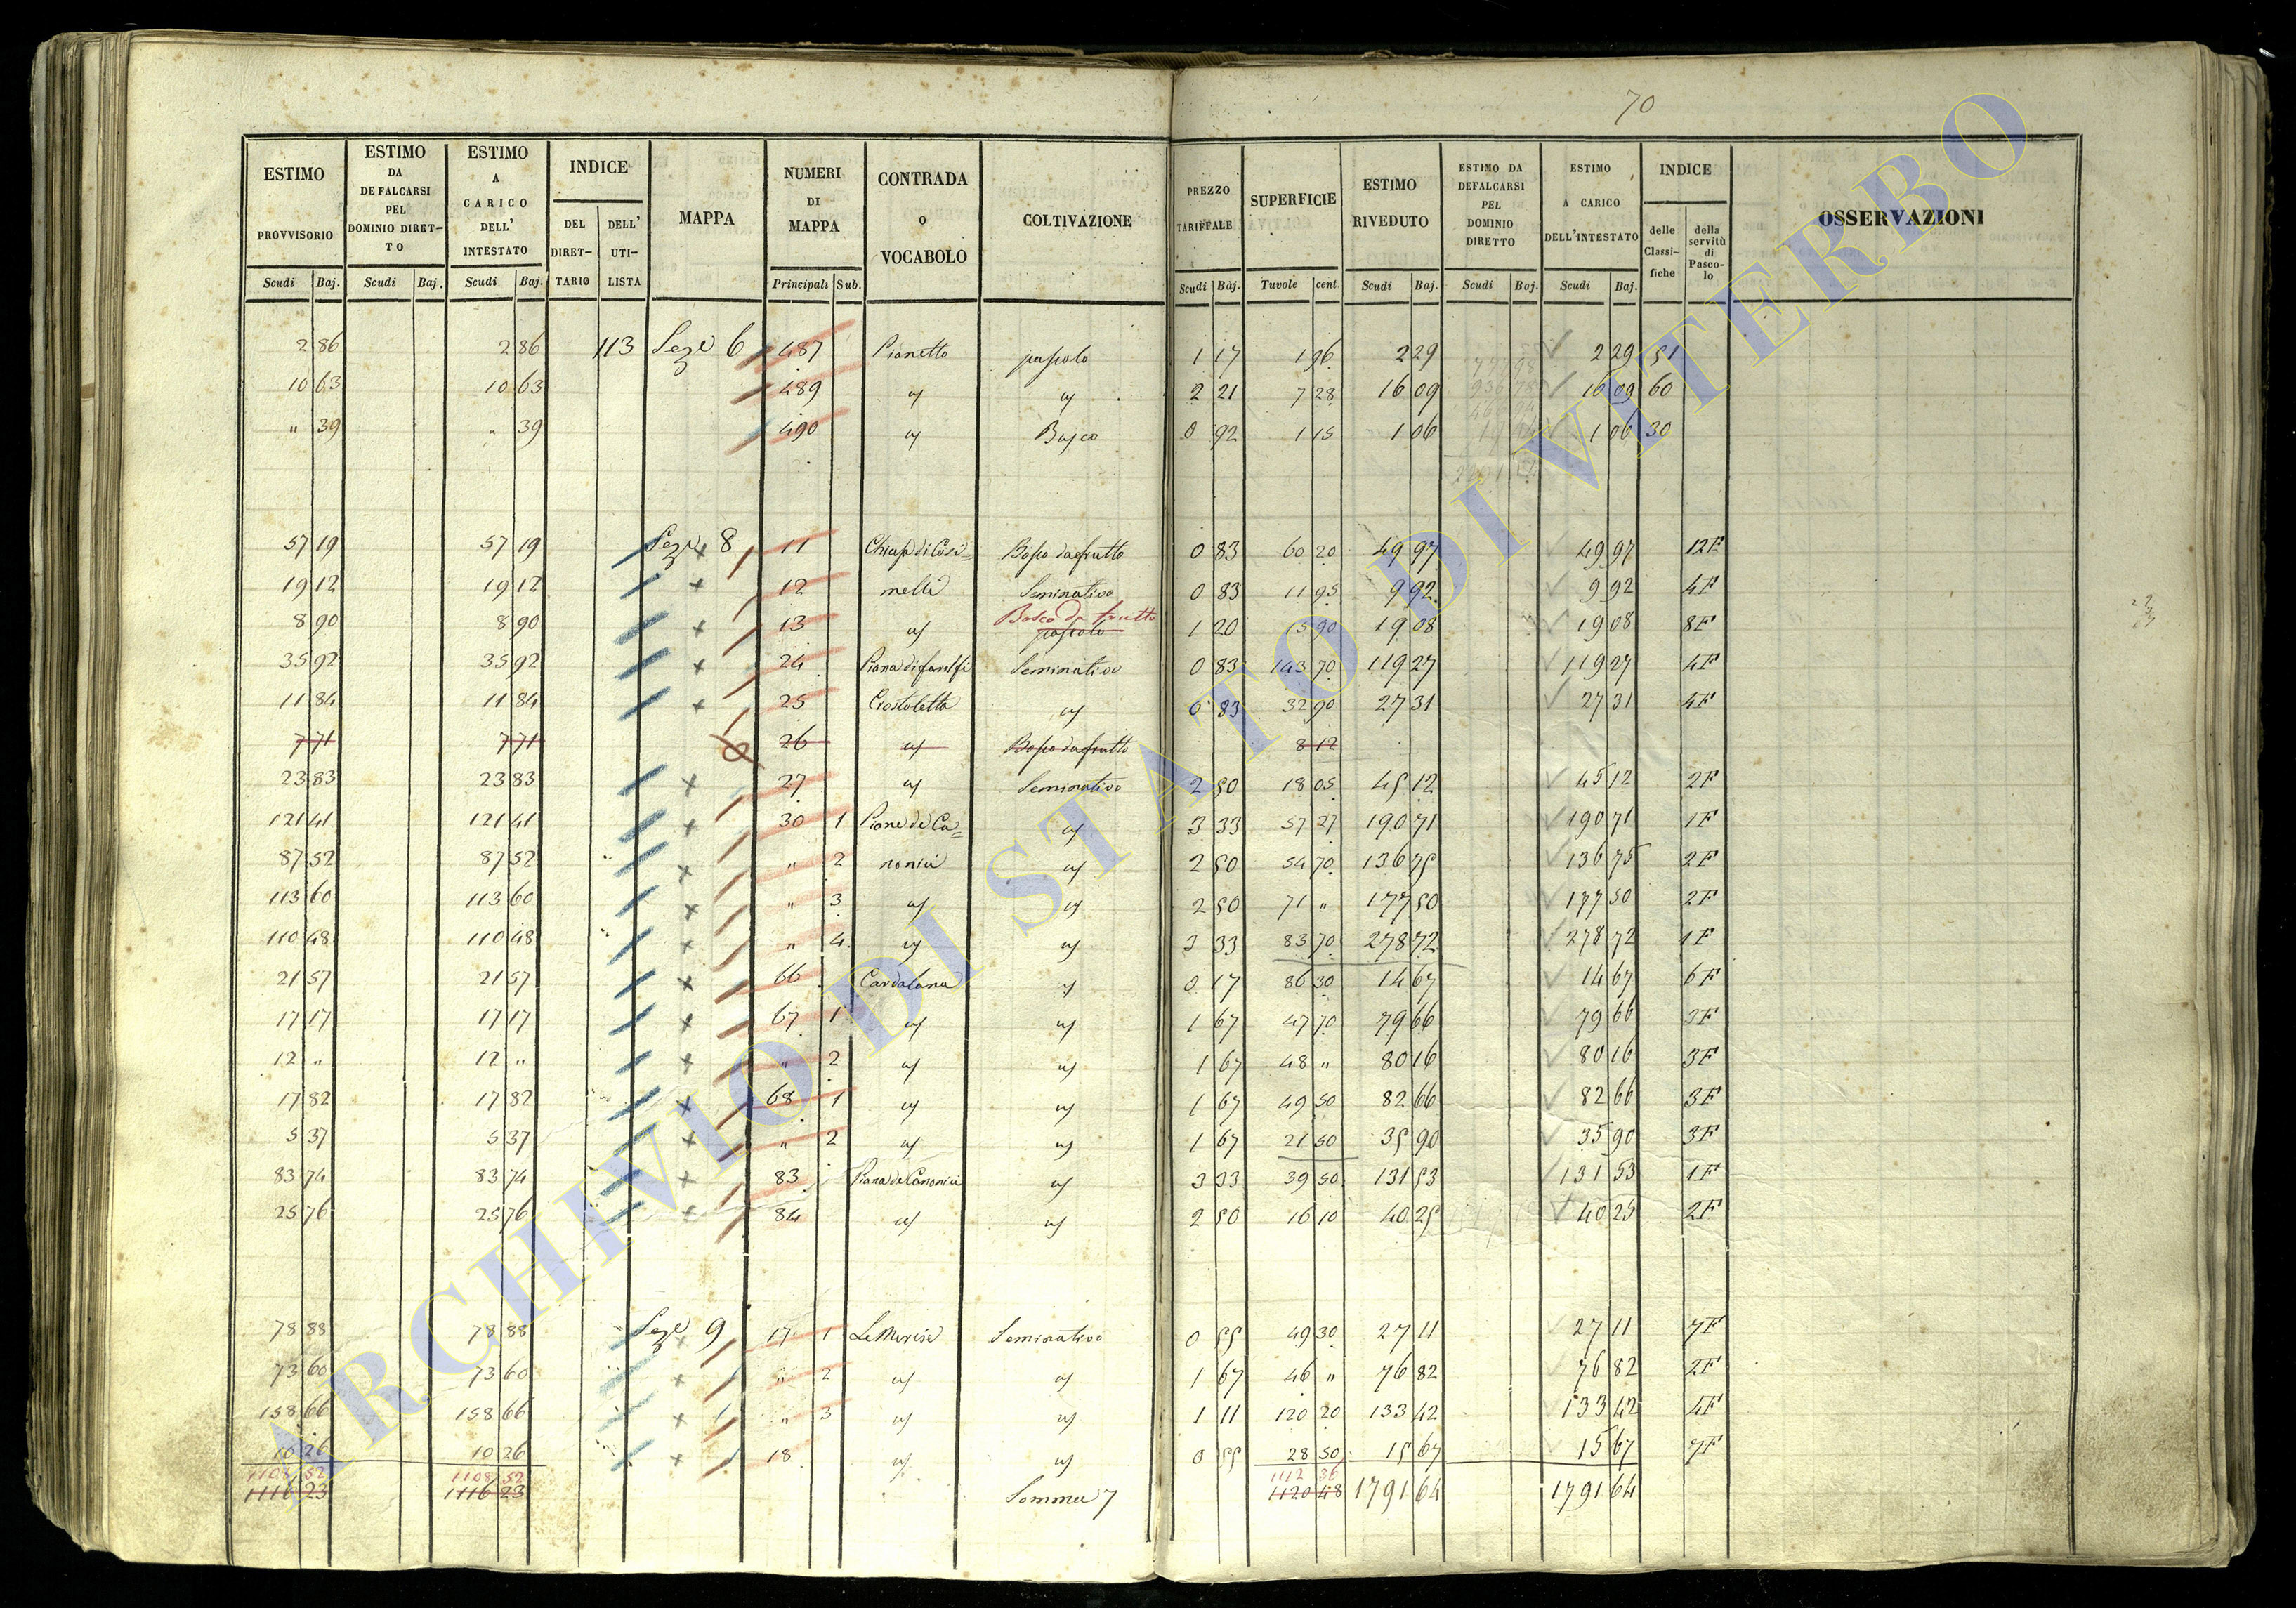 70
ESTIMO PROVVISORIO | ESTIMO DA DEFALCARSI PEL DOMINIO DIRETTO | ESTIMO A CARICO DELL' INTESTATO | INDICE | MAPPA | NUMERI DI MAPPA | CONTRADA O VOCABOLO | COLTIVAZIONE | PREZZO TARIFFALE | SUPERFICIE | ESTIMO RIVEDUTO | ESTIMO DA DEFALCARSI PEL DOMINIO DIRETTO | ESTIMO A CARICO DELL'INTESTATO | INDICE | OSSERVAZIONI
DEL DIRETTARIO | DELL' UTILISTA | delle Classifiche | della servitù di Pascolo
Scudi | Baj. | Scudi | Baj. | Scudi | Baj. | Principali | Sub. | Scudi | Baj. | Tuvole | cent | Scudi | Baj. | Scudi | Baj. | Scudi | Baj.
2 86 | 2 86 | 113 | Seze 6 | 487 | Pianetto | pascolo | 1 17 | 1 96 | 2 29 | 2 29 | 51
10 63 | 10 63 | 489 | " | " | 2 21 | 7 28 | 16 09 | 16 09 | 60
" 39 | " 39 | 490 | " | Bosco | 0 92 | 1 15 | 1 06 | 1 06 | 30
57 19 | 57 19 | Seze 8 | 11 | Chiusa di Cosi= | Bosco da frutto | 0 83 | 60 20 | 49 97 | 49 97 | 12F
19 12 | 19 12 | 12 | melli | Seminativo | 0 83 | 11 95 | 9 92 | 9 92 | 4F
Bosco da frutto
8 90 | 8 90 | 13 | " | pascolo | 1 20 | 15 90 | 19 08 | 19 08 | 8F
35 92 | 35 92 | 24 | Piana di | Seminativo | 0 83 | 143 70 | 119 27 | 119 27 | 4F
11 84 | 11 84 | 25 | Crostoletta | " | 0 83 | 32 90 | 27 31 | 27 31 | 4F
7 71 | 7 71 | 26 | " | Bosco da frutto | 8 12
23 83 | 23 83 | 27 | " | Seminativo | 2 50 | 18 05 | 45 12 | 45 12 | 2F
121 41 | 121 41 | 30 | 1 | Piane de Ca= | " | 3 33 | 57 27 | 190 71 | 190 71 | 1F
87 52 | 87 52 | " | 2 | nonici | " | 2 50 | 54 70 | 136 75 | 136 75 | 2F
113 60 | 113 60 | " | 3 | " | " | 2 50 | 71 " | 177 50 | 177 50 | 2F
110 48 | 110 48 | " | 4 | " | " | 3 33 | 83 70 | 278 72 | 278 72 | 1F
21 57 | 21 57 | 66 | Cardalana | " | 0 17 | 86 30 | 14 67 | 14 67 | 6F
17 17 | 17 17 | 67 | 1 | " | " | 1 67 | 47 70 | 79 66 | 79 66 | 3F
12 " | 12 " | " | 2 | " | " | 1 67 | 48 " | 80 16 | 80 16 | 3F
17 82 | 17 82 | 68 | 1 | " | " | 1 67 | 49 50 | 82 66 | 82 66 | 3F
5 37 | 5 37 | " | 2 | " | " | 1 67 | 21 50 | 35 90 | 35 90 | 3F
83 74 | 83 74 | 83 | Piana de Canonici | " | 3 33 | 39 50 | 131 53 | 131 53 | 1F
25 76 | 25 76 | 84 | " | " | 2 50 | 16 10 | 40 25 | 40 25 | 2F
78 88 | 78 88 | Seze 9 | 17 | 1 | Le | Seminativo | 0 55 | 49 30 | 27 11 | 27 11 | 7F
73 60 | 73 60 | " | 2 | " | " | 1 67 | 46 " | 76 82 | 76 82 | 2F
158 66 | 158 66 | " | 3 | " | " | 1 11 | 120 20 | 133 42 | 133 42 | 4F
10 26 | 10 26 | 18 | " | " | 0 55 | 28 50 | 15 67 | 15 67 | 7F
1108 52 | 1108 52 | 1112 36
1116 23 | 1116 23 | Somma | 1120 48 | 1791 64 | 1791 64
ARCHIVIO DI STATO DI VITERBO